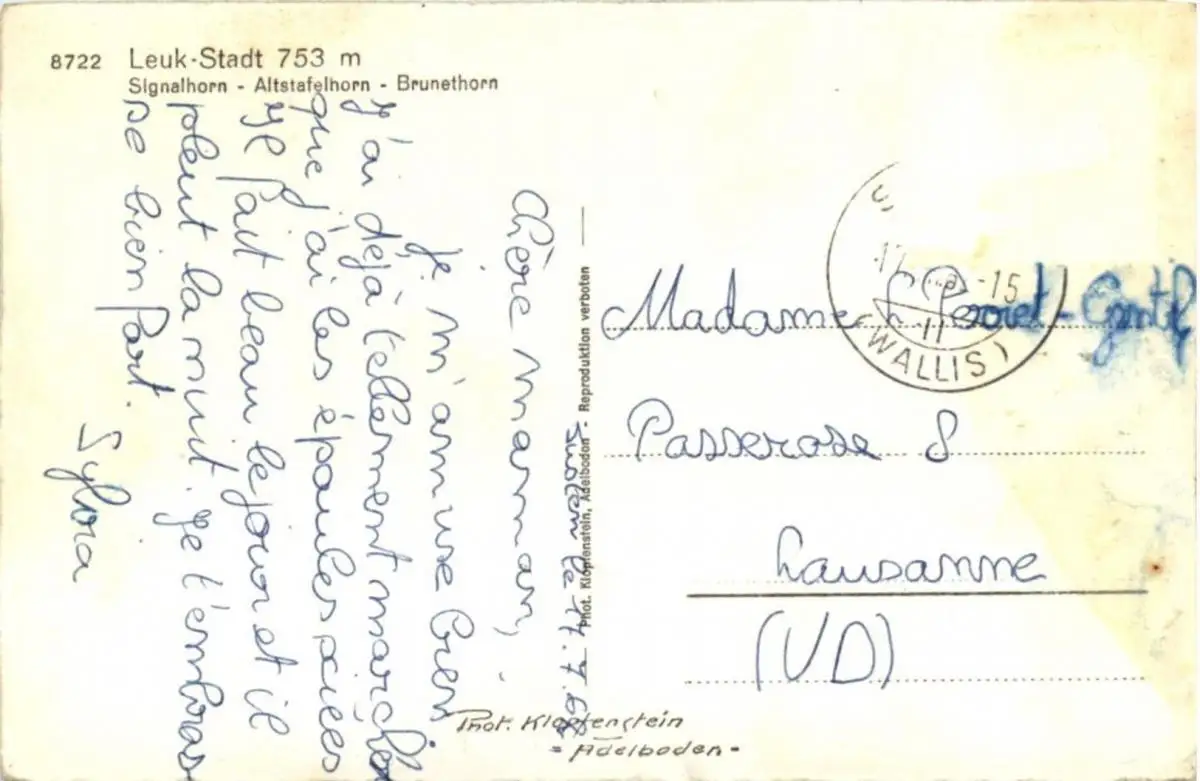 8722 Leuk-Stadt 753 m
Signalhorn - Altstafelhorn - Brunethorn
Susten le 17.7.68
Chère maman,
Je m'amuse bien
j'ai déjà tellement marcher
que j'ai les épaules sciées
Il fait beau le jour et il
pleut la nuit. Je t'embras
se bien fort.
Sylvia
Phot. Klopfenstein, Adelboden - Reproduktion verboten
Madame Perret-Gentil
Passerose 8
Lausanne
(VD)
-15
11
(WALLIS)
Phot. Klopfenstein
- Adelboden -